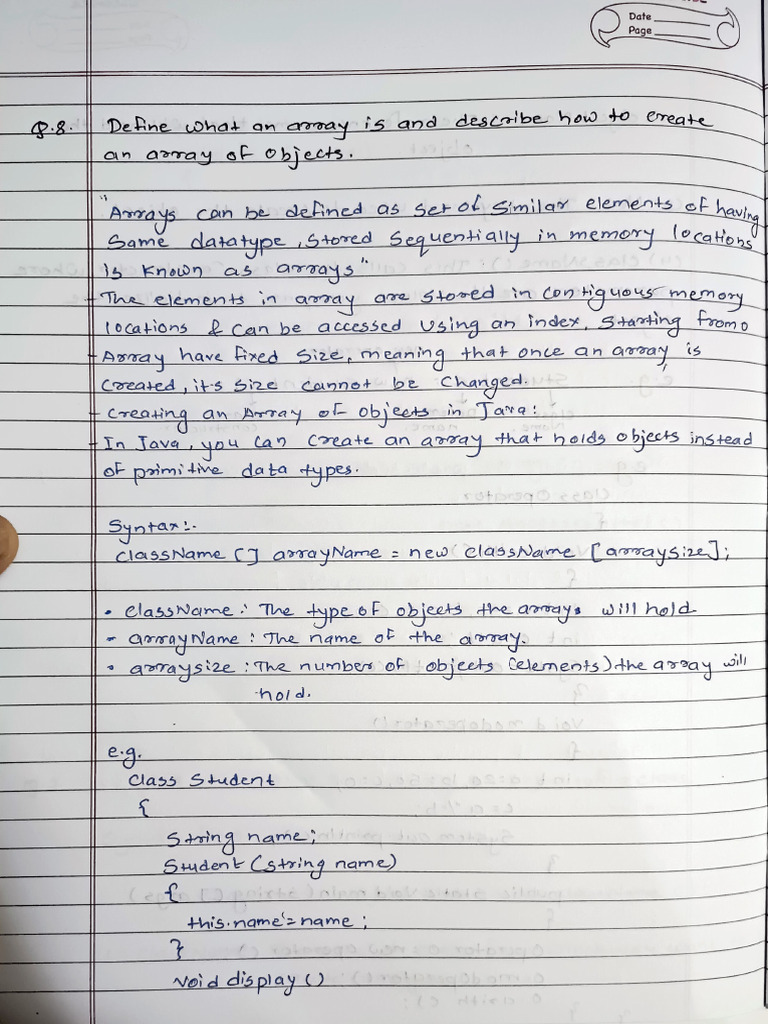 Date
Page
Q.8. Define what an array is and describe how to create
an array of objects.
"Arrays can be defined as set of similar elements of having
same datatype, stored sequentially in memory locations
is known as arrays"
- The elements in array are stored in contiguous memory
locations & can be accessed using an index, starting from 0
- Array have fixed size, meaning that once an array is
created, it's size cannot be changed.
- Creating an Array of objects in Java:
- In Java, you can create an array that holds objects instead
of primitive data types.
Syntax:-
className [] arrayName = new className [arraysize];
• className: The type of objects the arrays will hold
- arrayName: The name of the array.
• arraysize: The number of objects (elements) the array will
hold.
e.g.
class Student
{
String name;
Student (string name)
{
this.name = name;
}
void display ()